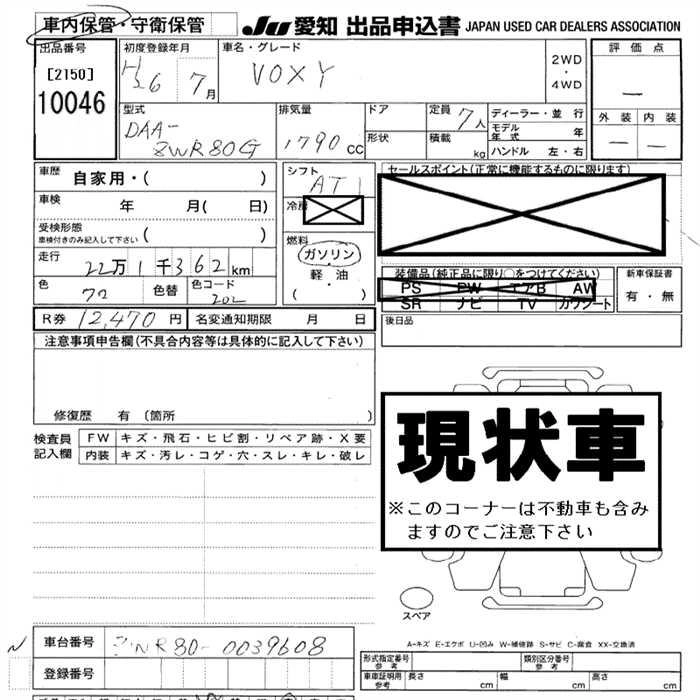 車内保管・守衛保管
JU 愛知 出品申込書 JAPAN USED CAR DEALERS ASSOCIATION
出品番号
[2150]
10046
初度登録年月
H26 7月
車名・グレード
VOXY
2WD
・
4WD
評価点
—
外装 内装
— —
型式
DAA-
ZWR80G
排気量
1790 cc
ドア
形状
定員 7人
積載 kg
ディーラー・並行
モデル
年式 年
ハンドル 左・右
車歴
自家用・( )
車検 年 月( 日)
受検形態
車検付きのみ記入して下さい ( )
走行 22万1千362km
色 色替 色コード 202
シフト
AT
冷房
燃料
ガソリン
軽・油
( )
セールスポイント(正常に機能するものに限ります)
装備品(純正品に限り○をつけてください)
PS PW エアB AW
SR ナビ TV カワシート
新車保証書
有・無
R券 12,470円 名変通知期限 月 日
後日品
注意事項申告欄(不具合内容等は具体的に記入して下さい)
修復歴 有(箇所 )
検査員
記入欄
FW キズ・飛石・ヒビ割・リペア跡・X要
内装 キズ・汚レ・コゲ・穴・スレ・キレ・破レ
現状車
※このコーナーは不動車も含み
ますのでご注意下さい
スペア
A-キズ E-エクボ U-凹み W-補修跡 S-サビ C-腐食 XX-交換済
車台番号 ZWR80-0039608
登録番号
形式指定番号
参考
類別区分番号
参考
車庫証明用
参考
長さ cm 幅 cm 高さ cm